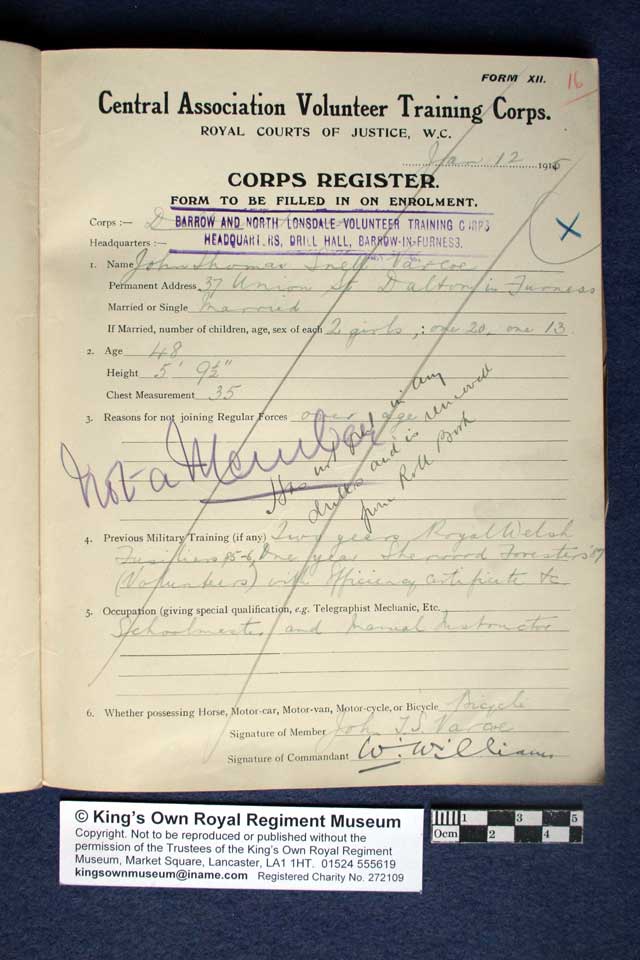 FORM XII. 16
Central Association Volunteer Training Corps.
ROYAL COURTS OF JUSTICE, W.C.
Jan 12 1915
CORPS REGISTER.
FORM TO BE FILLED IN ON ENROLMENT.
Corps :— D BARROW AND NORTH LONSDALE VOLUNTEER TRAINING CORPS
Headquarters :— HEADQUARTERS, DRILL HALL, BARROW-IN-FURNESS.
X
1. Name John Thomas Snell Varcoe
Permanent Address 37 Union St Dalton in Furness
Married or Single Married
If Married, number of children, age, sex of each 2 girls, : one 20, one 13.
2. Age 48
Height 5' 9½"
Chest Measurement 35
3. Reasons for not joining Regular Forces over age
Not a Member
Has not in any
drills and is removed
from Roll Book
4. Previous Military Training (if any) Two years Royal Welsh
Fusiliers 85-6, One year Sherwood Foresters '87
(Volunteers) with Efficiency certificate &c
5. Occupation (giving special qualification, e.g. Telegraphist Mechanic, Etc.
Schoolmaster and Manual Instructor
6. Whether possessing Horse, Motor-car, Motor-van, Motor-cycle, or Bicycle Bicycle
Signature of Member John T. S. Varcoe
Signature of Commandant W. Williams
© King's Own Royal Regiment Museum
Copyright. Not to be reproduced or published without the
permission of the Trustees of the King's Own Royal Regiment
Museum, Market Square, Lancaster, LA1 1HT. 01524 555619
kingsownmuseum@iname.com Registered Charity No. 272109
1 3 5
0cm 2 4